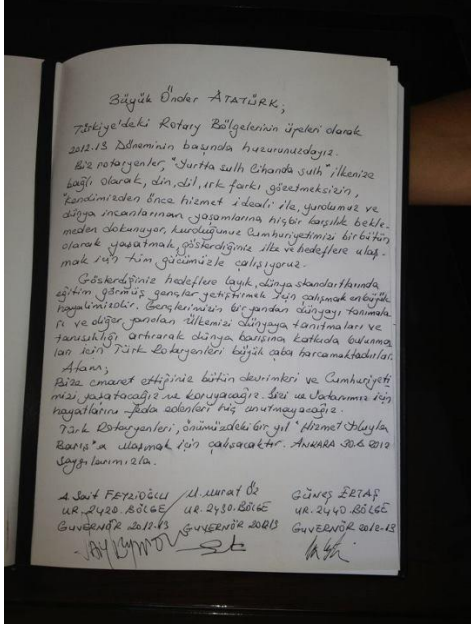 Büyük Önder ATATÜRK,
Türkiye'deki Rotary Bölgelerinin üyeleri olarak
2012-13 Döneminin başında huzurunuzdayız.
Biz rotaryenler, "Yurtta sulh Cihanda sulh" ilkenize
bağlı olarak, din, dil, ırk farkı gözetmeksizin,
"Kendimizden önce hizmet ideali" ile, yurdumuz ve
dünya insanlarının yaşamlarına hiçbir karşılık bekle-
meden dokunuyor, kurduğunuz Cumhuriyetimizi bir bütün
olarak yaşatmak, gösterdiğiniz ilke ve hedeflere ulaş-
mak için tüm gücümüzle çalışıyoruz.
Gösterdiğiniz hedeflere layık, dünya standartlarında
eğitim görmüş gençler yetiştirmek için çalışmak en büyük
hayalimizdir. Gençlerimizin bir yandan dünyayı tanımala-
rı ve diğer yandan ülkemizi dünyaya tanıtmaları ve
tanışıklığı artırarak dünya barışına katkıda bulunma-
ları için Türk Rotaryenleri büyük çaba harcamaktadırlar.
Atam,
Bize emanet ettiğiniz bütün devrimleri ve Cumhuriyeti-
mizi yaşatacağız ve koruyacağız. Sizi ve Vatanımız için
hayatlarını feda edenleri hiç unutmayacağız.
Türk Rotaryenleri, önümüzdeki bir yıl "Hizmet Yoluyla
Barış"a ulaşmak için çalışacaktır. ANKARA 30.6.2012
Saygılarımızla.
A. Sait FEYZİOĞLU M. Murat ÖZ GÜNEŞ ERTAŞ
UR. 2420. BÖLGE UR. 2430. BÖLGE UR. 2440. BÖLGE
GUVERNÖR 2012-13 GUVERNÖR 2012-13 GUVERNÖR 2012-13